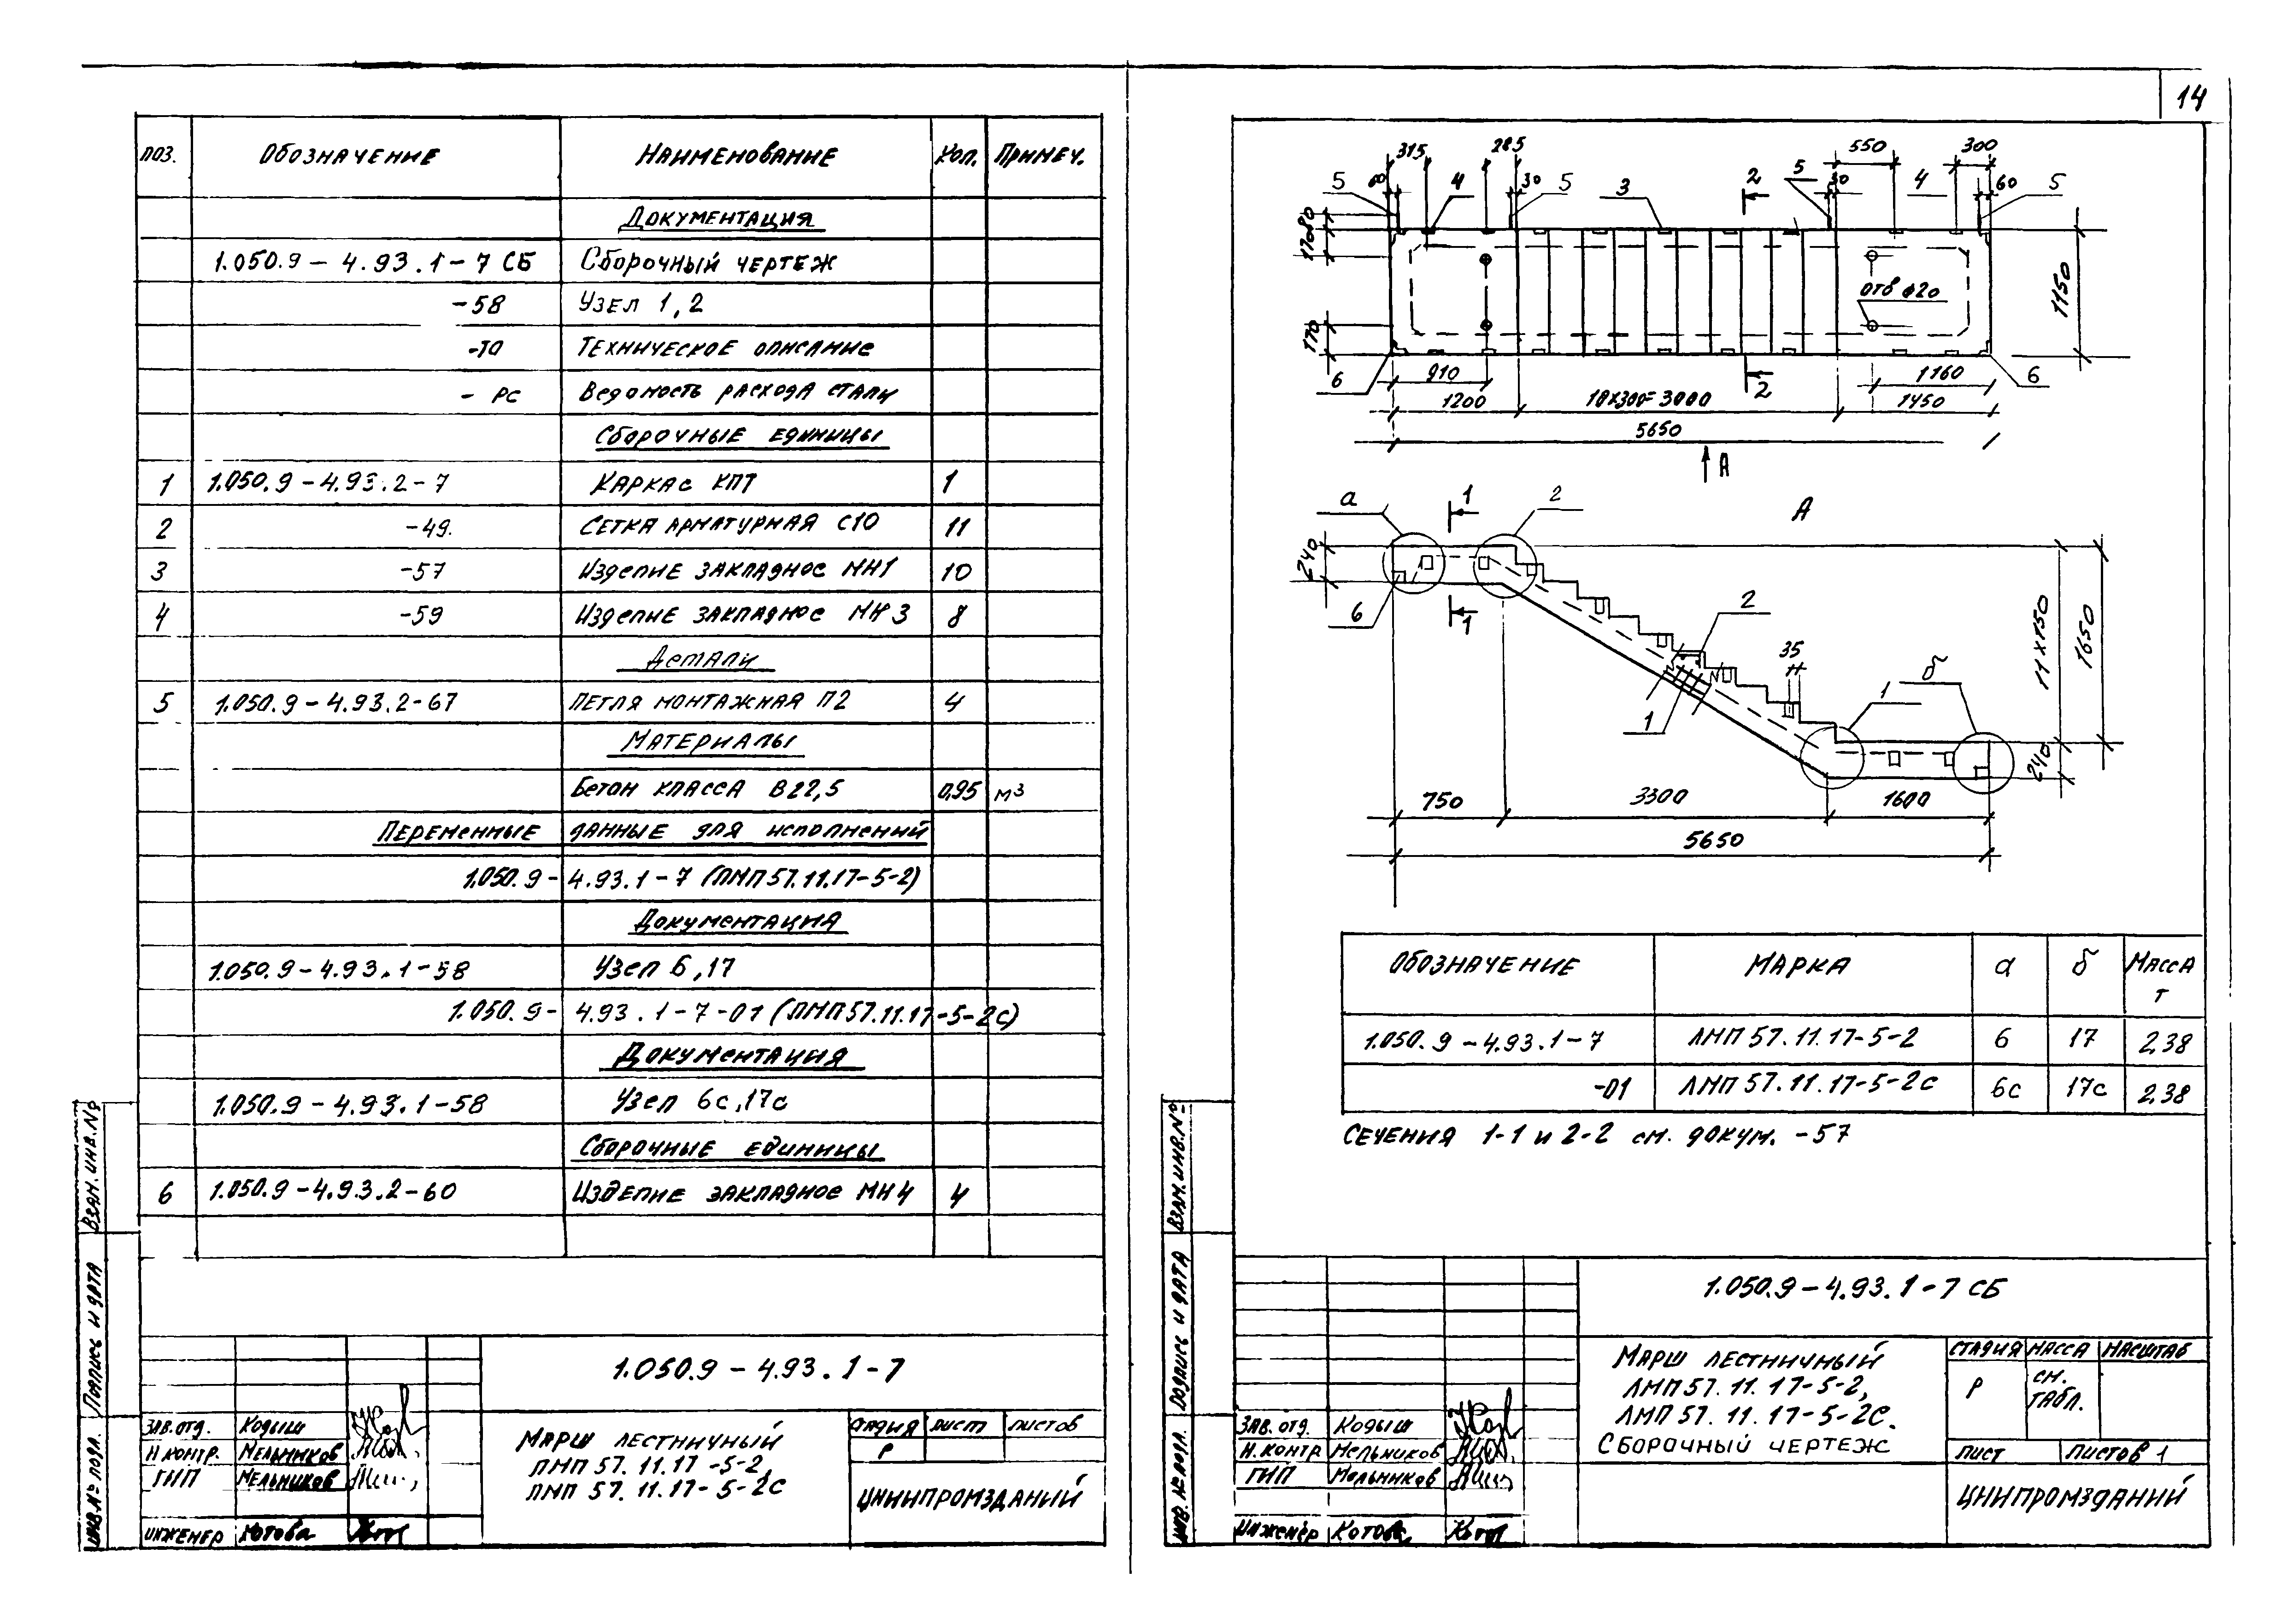 14
ПОЗ. Обозначение Наименование Кол. Примеч.
Документация
1.050.9-4.93.1-7 СБ Сборочный чертеж
-58 Узел 1,2
-ТО Техническое описание
- РС Ведомость расхода стали
Сборочные единицы
1 1.050.9-4.93.2-7 Каркас КП7 1
2 -49. Сетка арматурная С10 11
3 -57 Изделие закладное МН1 10
4 -59 Изделие закладное МН3 8
Детали
5 1.050.9-4.93.2-67 Петля монтажная П2 4
Материалы
Бетон класса В22,5 0,95 м3
Переменные данные для исполнений
1.050.9-4.93.1-7 (ЛМП57.11.17-5-2)
Документация
1.050.9-4.93.1-58 Узел 6,17
1.050.9-4.93.1-7-01 (ЛМП57.11.17-5-2с)
Документация
1.050.9-4.93.1-58 Узел 6с,17с
Сборочные единицы
6 1.050.9-4.93.2-60 Изделие закладное МН4 4
1.050.9-4.93.1-7
Зав.отд. Кодыш
Н.контр. Мельников
ГИП Мельников
Инженер Котова
Марш лестничный
ЛМП 57.11.17-5-2,
ЛМП 57.11.17-5-2С
Стадия Лист Листов
Р
ЦНИИПРОМЗДАНИЙ
Взам.инв.№
Подпись и дата
Инв.№ подл.
315 285 550 300
5 60 4 30 5 3 2 5 30 4 60 5
80
170
отв ф20
1150
170
6 910 2 1160 6
1200 10х300=3000 1450
5650
А
а 1 2 А
240
6 1 2
35
11х150
1650
б
1 1
240
750 3300 1600
5650
Обозначение Марка а б Масса
т
1.050.9-4.93.1-7 ЛМП 57.11.17-5-2 6 17 2,38
-01 ЛМП 57.11.17-5-2с 6с 17с 2,38
Сечения 1-1 и 2-2 см. докум. -57
1.050.9-4.93.1-7 СБ
Зав.отд. Кодыш
Н.контр Мельников
ГИП Мельников
Инженер Котова
Марш лестничный
ЛМП 57.11.17-5-2,
ЛМП 57.11.17-5-2С.
Сборочный чертеж
Стадия Масса Масштаб
Р см.
табл.
Лист Листов 1
ЦНИПРОМЗДАНИЙ
Взам.инв.№
Подпись и дата
Инв.№ подл.